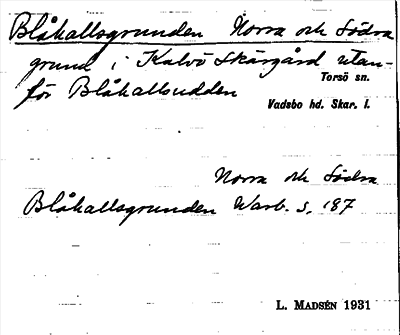 Blåhallsgrunden Norra och Södra
grund i Kalvö Skärgård utan-
för Blåhallsudden
Torsö sn.
Vadsbo hd. Skar. l.
Norra och Södra
Blåhallsgrunden Warb. S. 187
L. MADSÉN 1931